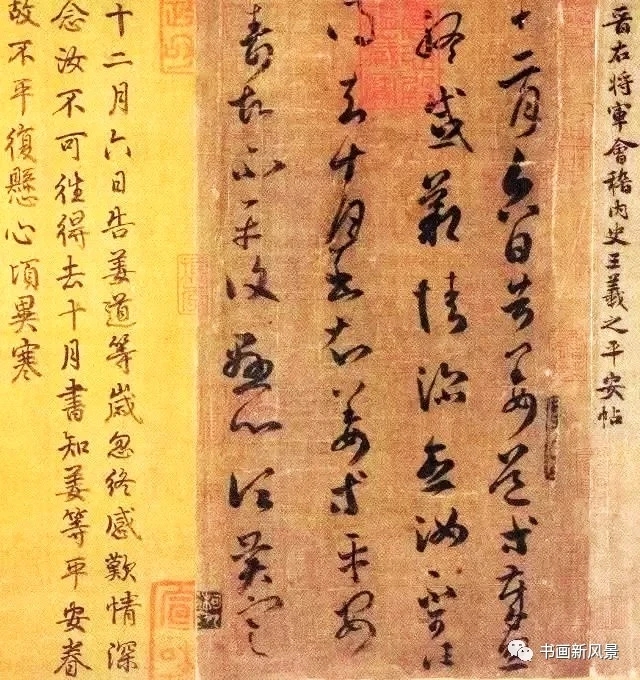 晉右将軍會稽内史王羲之平安帖
十二月六日告姜道等歲忽
終感歎情深念汝不可往
得去十月書知姜等平安
壽故不平復懸心頃異寒
十二月六日告姜道等歲忽終感歎情深
念汝不可往得去十月書知姜等平安眷
故不平復懸心頃異寒
书画新风景